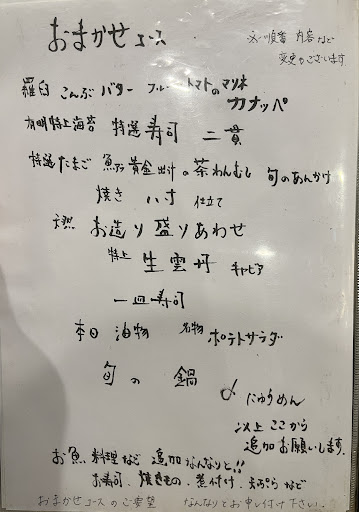 おまかせコース
※順番 内容など
変更もございます
羅臼 こんぶ バター フルーツトマトのマリネ
カナッペ
有明特上海苔 特選 寿司 二貫
特選たまご 魚介 黄金出汁の茶わんむし 旬のあんかけ
焼き 八寸 仕立て
天然 お造り 盛りあわせ
特上 生雲丹 キャビア
一皿寿司
本日 油物 名物 ポテトサラダ
旬の 鍋
〆 にゅうめん
以上 ここから
追加お願いします
お魚 料理など 追加なんなりと!!
お寿司、焼きもの、煮付け、天ぷら など
おまかせコースのご要望 なんなりとお申し付け下さい。